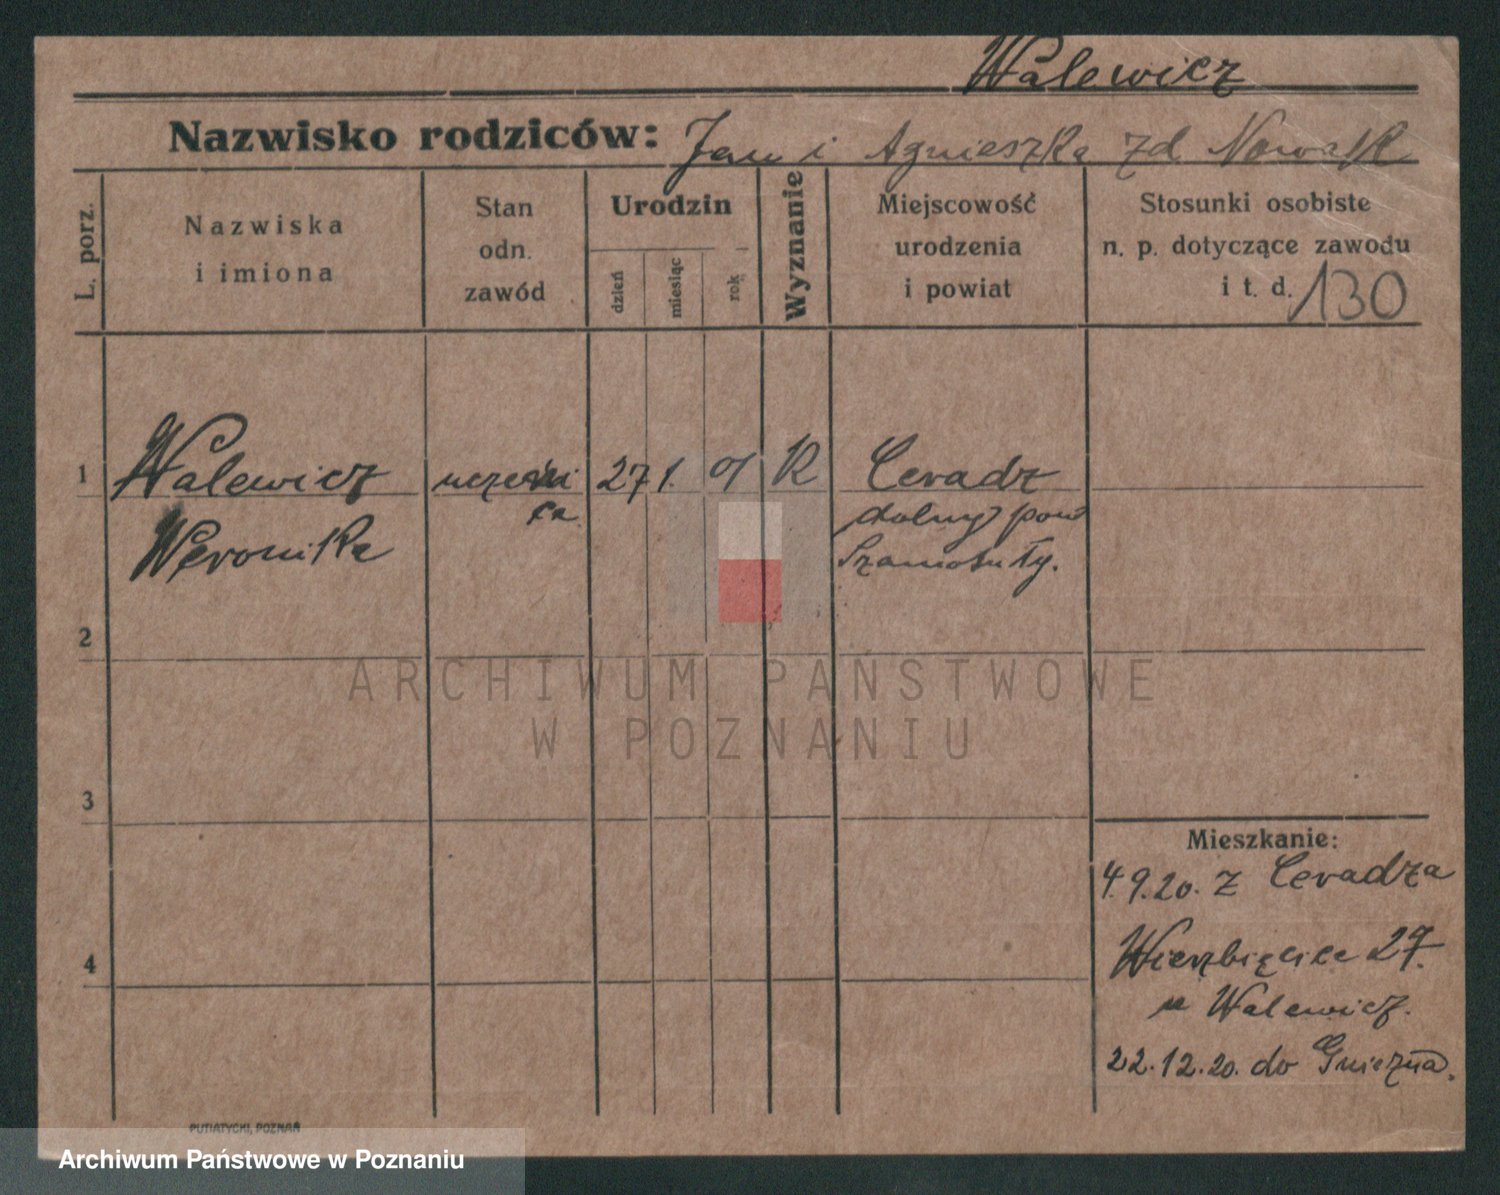 Walewicz
Nazwisko rodziców: Jan i Agnieszka zd Nowak
L. porz.
Nazwiska
i imiona
Stan
odn.
zawód
Urodzin
dzień
miesiąc
rok
Wyznanie
Miejscowość
urodzenia
i powiat
Stosunki osobiste
n. p. dotyczące zawodu
i t. d. 130
1 Walewicz 27 1. 01 R Ceradz
Weronika
dolny pow
Szamotuły.
2
3
4
Mieszkanie:
4.9.20. z Ceradza
Wierzbięcice 27.
u Walewicz.
22.12.20. do Gniezna.
PUTIATYCKI, POZNAŃ
ARCHIWUM PAŃSTWOWE
W POZNANIU
Archiwum Państwowe w Poznaniu